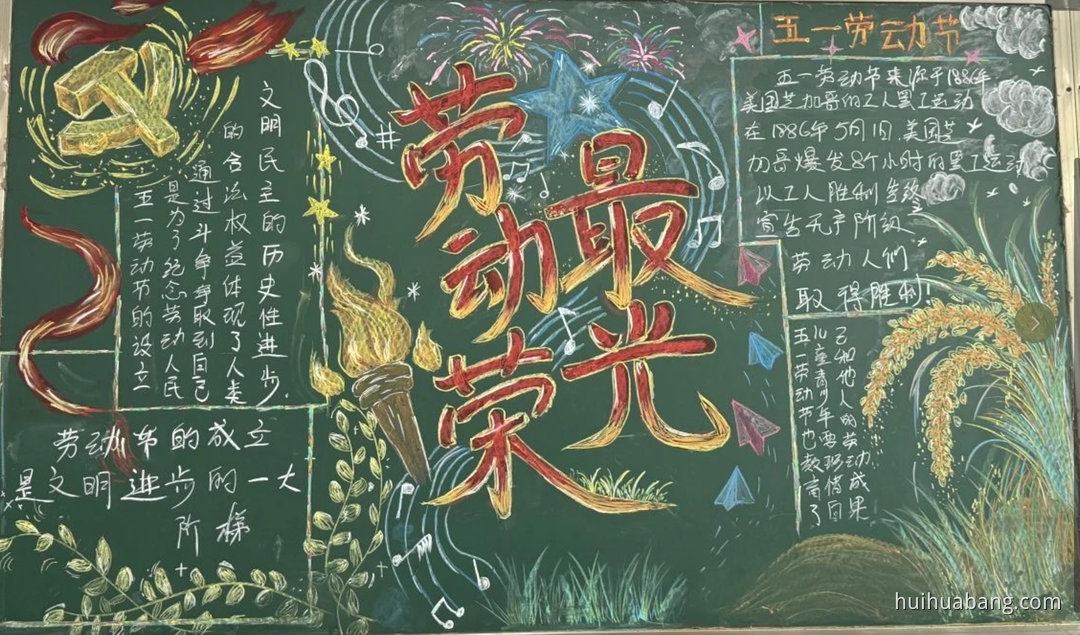 五一劳动节的设立
是为了纪念劳动人民
通过斗争争取到自己
的合法权益体现了人类
文明民主的历史性进步.
劳动节的成立
是文明进步的一大
阶梯
劳动
最光
荣
五一劳动节
五一劳动节来源于1886年
美国芝加哥的工人罢工运动
在1886年5月1日,美国芝
加哥爆发8个小时的罢工运动
以工人胜利告终
宣告无产阶级
劳动人们
取得胜利!
五一劳动节也教育了
儿童青少年要珍惜自
己和他人的劳动成果
huihuabang.com